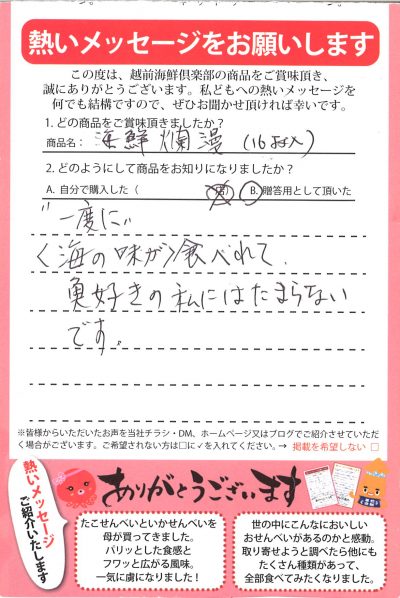 熱いメッセージをお願いします
この度は、越前海鮮倶楽部の商品をご賞味頂き、
誠にありがとうございます。私どもへの熱いメッセージを
何でも結構ですので、ぜひお聞かせ頂ければ幸いです。
1. どの商品をご賞味頂きましたか?
商品名: 海鮮爛漫 (16枚入)
2. どのようにして商品をお知りになりましたか?
A. 自分で購入した ( 店) B. 贈答用として頂いた
"一度に"
く海の味が〉食べれて、
魚好きの私にはたまらない
です。
※皆様からいただいたお声を当社チラシ・DM、ホームページ又はブログでご紹介させていただ
く場合がございます。ご希望されない方は□に✓を入れてください。→ 掲載を希望しない □
熱いメッセージ
ご紹介いたします
ありがとうございます
たこせんべいといかせんべいを
母が買ってきました。
パリッとした食感と
フワッと広がる風味。
一気に虜になりました!
世の中にこんなにおいしい
おせんべいがあるのかと感動。
取り寄せようと調べたら他にも
たくさん種類があって、
全部食べてみたくなりました。